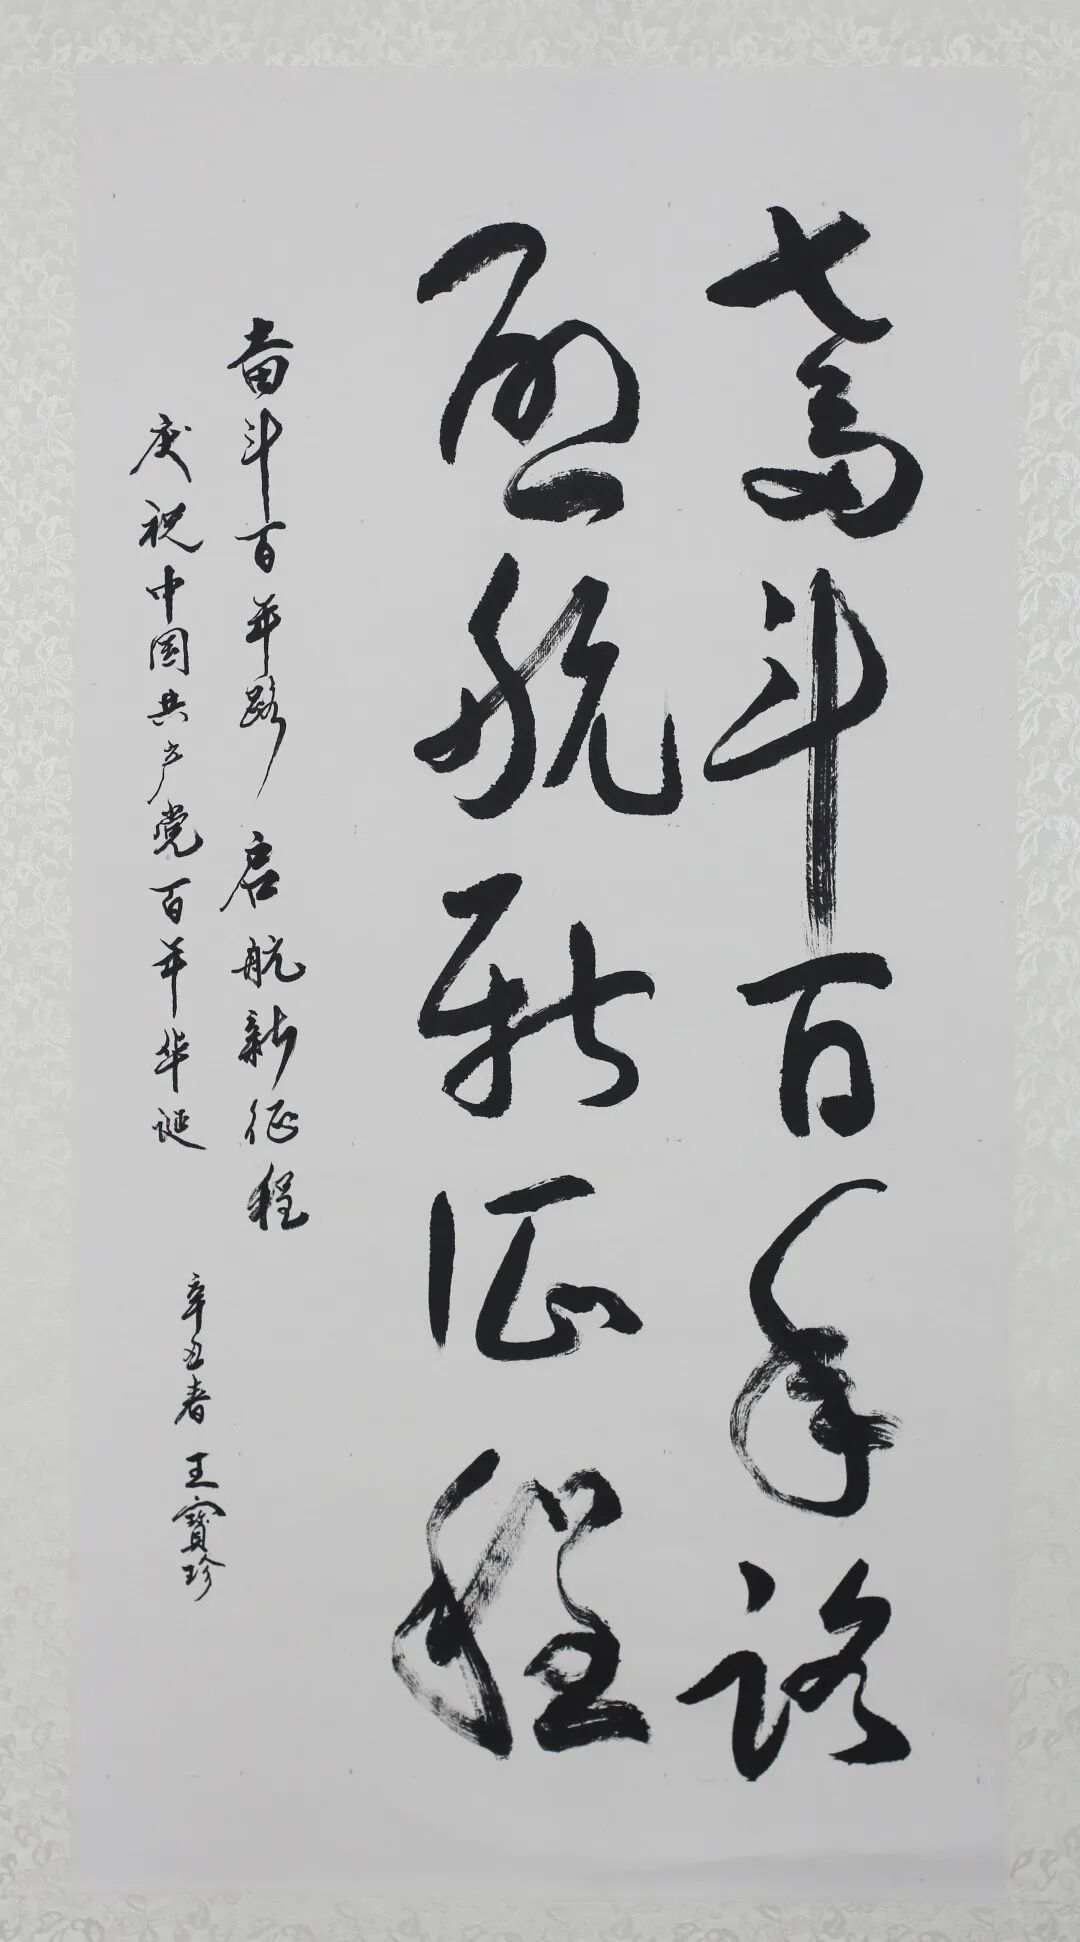 奋斗百年路
启航新征程
奋斗百年路 启航新征程
庆祝中国共产党百年华诞
辛丑春 王寳珍